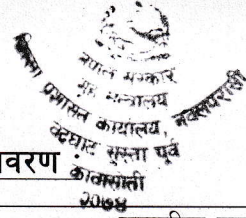 नेपाल सरकार
गृह मन्त्रालय
प्रशासन कार्यालय, नवलपरासी
बर्दघाट सुस्ता पूर्व
कावासोती
२०७४
वरण